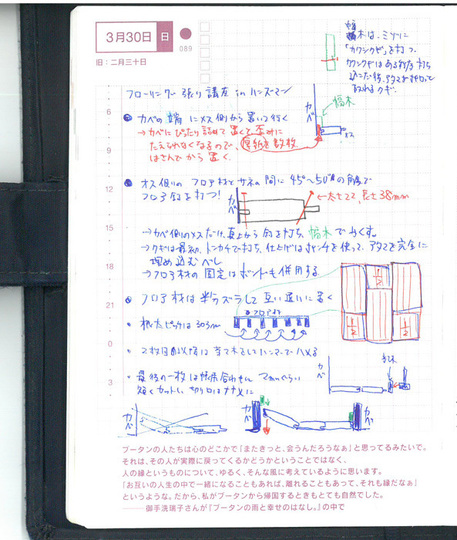 3月30日 日
089
旧:二月三十日
巾木は、ミゾに
「カクシクギ」を打つ。
フローリング張り講座 in ハンズマン
6
カベの端にメス側から置いて行く
→カベにぴったり詰めて置くと歪みに
たえられなくなるので、厚紙を数枚
はさんでから置く。
カベ
巾木
メス
9
12
オス側のフロア材でサネの間に45°〜50°の角度で
フロア釘を打つ!
カベ
太さ22, 長さ38mm
→カベ側のメスだけ、真上から釘を打ち、巾木でかくす。
15
→クギは最初、トンカチで打ち、仕上げはポンチを使って、アタマを完全に
埋め込むべし
18
→フロア材の固定はボンドも併用する
21
フロア材は半分ズラして互い違いに置く
フロア材
根太ピッチは303mm
0
2枚目以降は当て木をしてハンマーでハメる
3
最後の一枚は
短くカットし、切り口はナナメに
カベ
カベ
ブータンの人たちは心のどこかで「またきっと、会うんだろうなぁ」と思ってるみたいで。
それは、その人が実際に戻ってくるかどうかということではなく、
人の縁というものについて、ゆるく、そんな風に考えているように思います。
「お互いの人生の中で一緒になることもあれば、離れることもあって、それも縁だなぁ」
というような。だから、私がブータンから帰国するときもとても自然でした。
——御手洗瑞子さんが『ブータンの雨と幸せのはなし。』の中で